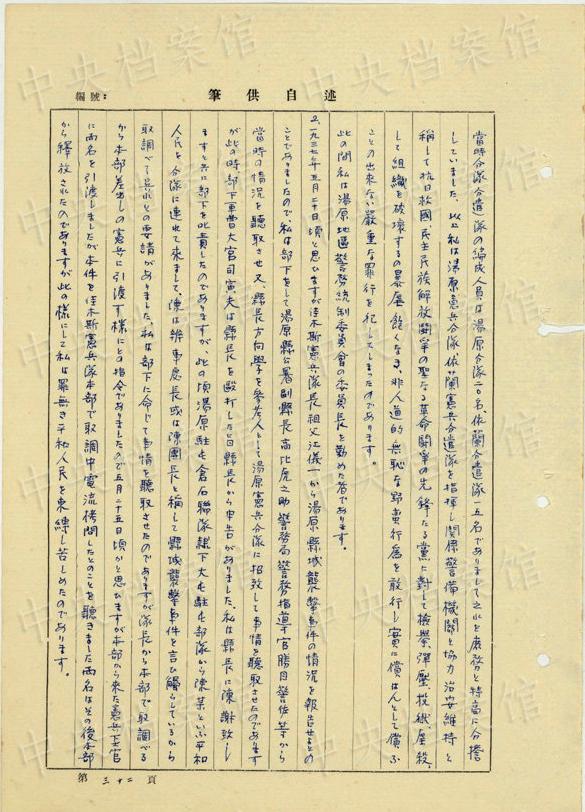 述自供筆
編號：
當時分隊分遣隊の編成人員は湯原分隊二〇名、依蘭分遣隊一五名でありまして之れを庶務と特高に分擔
していました、以上私は湯原憲兵分隊依蘭憲兵分遣隊を指揮し関係警備機関と協力治安維持と
稱して抗日救國民主民族解放闘爭の聖なる革命闘爭の先鋒たる黨に対して檢擧、彈壓、投獄、屠殺、
して組織を破壊するの暴虐飽くなき、非人道的無恥な野蛮行為を敢行し實に償はんとして償ふ
ことの出来ない嚴重な罪行を犯してしまったのであります。
此の間私は湯原地區警務統制委員會の委員長を勤めた者であります。
2、一九三七年五月二十日頃と思ひますが佳木斯憲兵隊長祖父江儀一から湯原縣城襲撃事件の情況を報告せよとの
ことでありましたので私は部下をして湯原縣公署副縣長高比虎之助警務局警務指導官勝目警佐等から
當時の情況を聽取させ又、縣長方向学を參考人として湯原憲兵分隊に招致して事情を聽取させたのであります
が此の時、部下軍曹大宮司寅夫は縣長を毆打した旨縣長から申告がありました、私は縣長に陳謝致し
ますと共に部下を叱責したのでありますが、此の頃湯原駐屯倉石聯隊隷下大毛駐屯部隊から陳某といふ平和
人民を分隊に連れて来まして、陳は辦事處長或は陳團長と稱して縣城襲撃事件を言ひ觸らしているから
取調べて呉れとの要請がありました、私は部下に命じて事情を聽取させたのでありますが隊長から本部で取調べる
から本部差出しの憲兵に引渡す様にとの指令でありましたので五月二十五日頃かと思ひますが本部から来た憲兵下士官
に両名を引渡しましたが本件を佳木斯憲兵隊本部で取調中電流拷問したとのことを聽きました両名はその後本部
から釋放されたのでありますが此の様にして私は罪無き平和人民を束縛し苦しめたのであります。
第 三十二 頁
中央档案馆